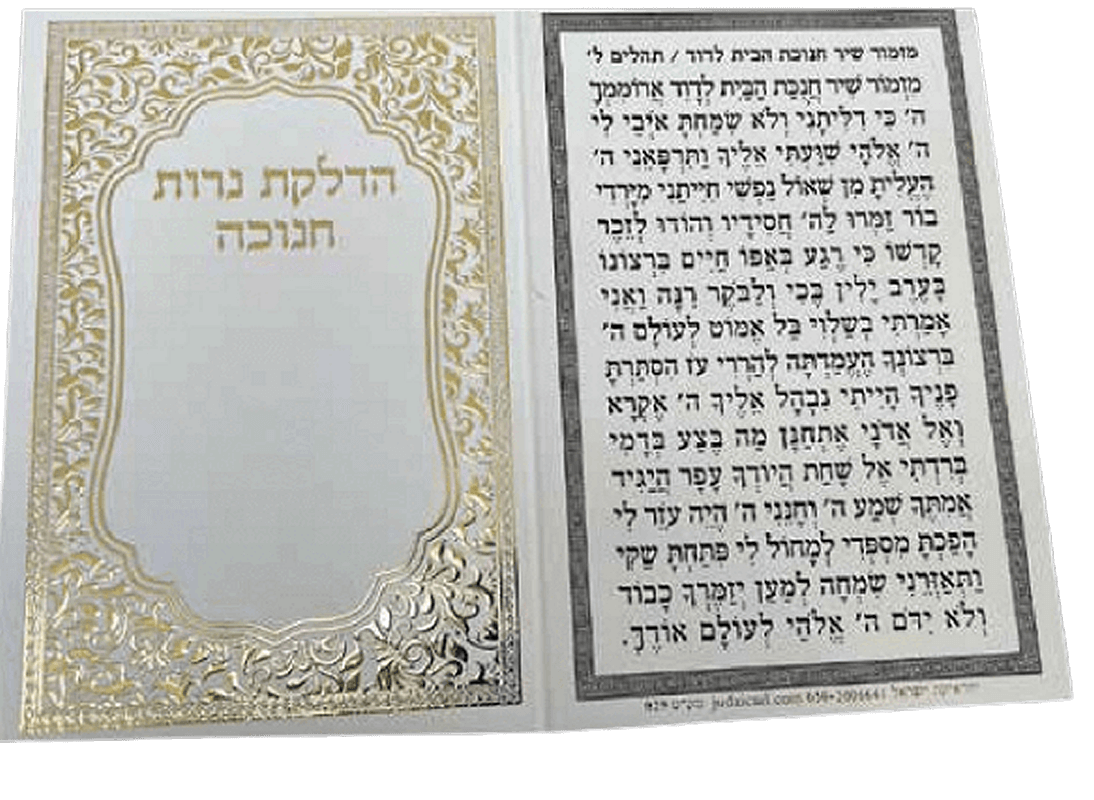 הדלקת נרות
חנוכה
מזמור שיר חנוכת הבית לדוד / תהלים ל'
מִזְמוֹר שִׁיר חֲנֻכַּת הַבַּיִת לְדָוִד אֲרוֹמִמְךָ
ה' כִּי דִלִּיתָנִי וְלֹא שִׂמַּחְתָּ אֹיְבַי לִי
ה' אֱלֹהָי שִׁוַּעְתִּי אֵלֶיךָ וַתִּרְפָּאֵנִי ה'
הֶעֱלִיתָ מִן שְׁאוֹל נַפְשִׁי חִיִּיתַנִי מִיָּרְדִי
בוֹר זַמְּרוּ לַה' חֲסִידָיו וְהוֹדוּ לְזֵכֶר
קָדְשׁוֹ כִּי רֶגַע בְּאַפּוֹ חַיִּים בִּרְצוֹנוֹ
בָּעֶרֶב יָלִין בֶּכִי וְלַבֹּקֶר רִנָּה וַאֲנִי
אָמַרְתִּי בְשַׁלְוִי בַּל אֶמּוֹט לְעוֹלָם ה'
בִּרְצוֹנְךָ הֶעֱמַדְתָּה לְהַרְרִי עֹז הִסְתַּרְתָּ
פָנֶיךָ הָיִיתִי נִבְהָל אֵלֶיךָ ה' אֶקְרָא
וְאֶל אֲדֹנָי אֶתְחַנָּן מַה בֶּצַע בְּדָמִי
בְּרִדְתִּי אֶל שָׁחַת הֲיוֹדְךָ עָפָר הֲיַגִּיד
אֲמִתֶּךָ שְׁמַע ה' וְחָנֵּנִי ה' הֱיֵה עֹזֵר לִי
הָפַכְתָּ מִסְפְּדִי לְמָחוֹל לִי פִּתַּחְתָּ שַׂקִּי
וַתְּאַזְּרֵנִי שִׂמְחָה לְמַעַן יְזַמֶּרְךָ כָבוֹד
וְלֹא יִדֹּם ה' אֱלֹהַי לְעוֹלָם אוֹדֶךָּ.
ישראל judaicail.com